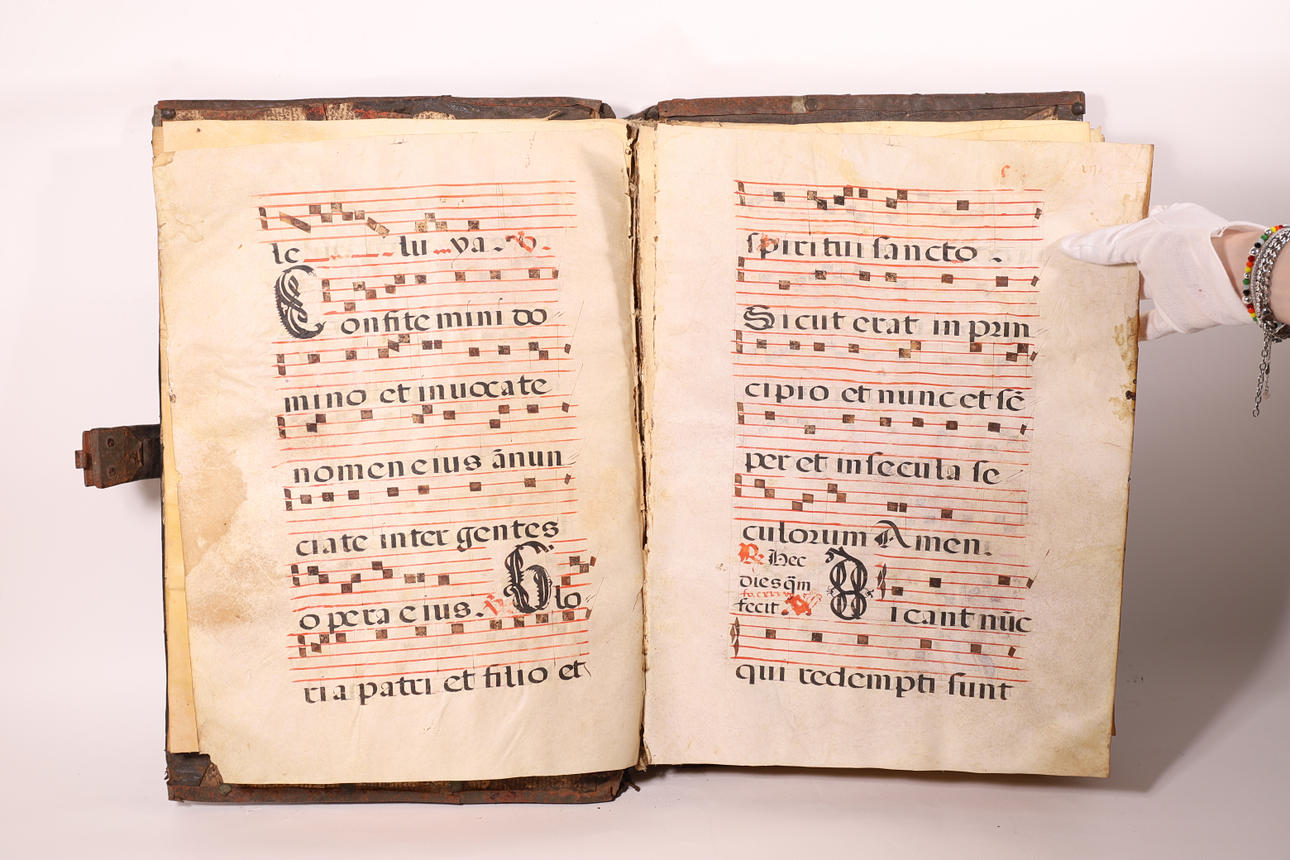 le lu ya. V.
Confitemini do
mino et inuocate
nomen eius ãnun
ciate inter gentes
opera eius. Glo
ria patri et filio et
spiritui sancto.
Sicut erat in prin
cipio et nunc et sẽ
per et in secula se
culorum Amen.
R. Hec
dies q̃m
fecit
Dicant nũc
qui redempti sunt